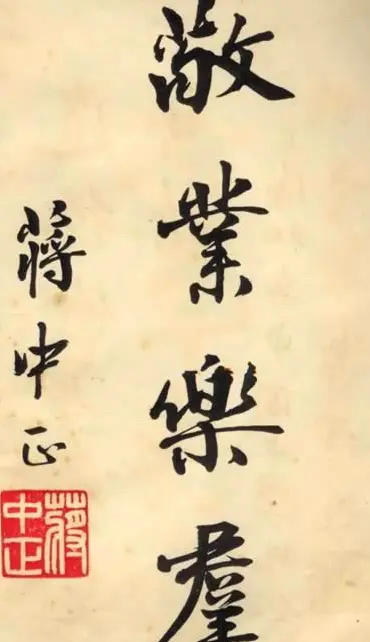 敬業樂羣
蔣中正
蔣
中正